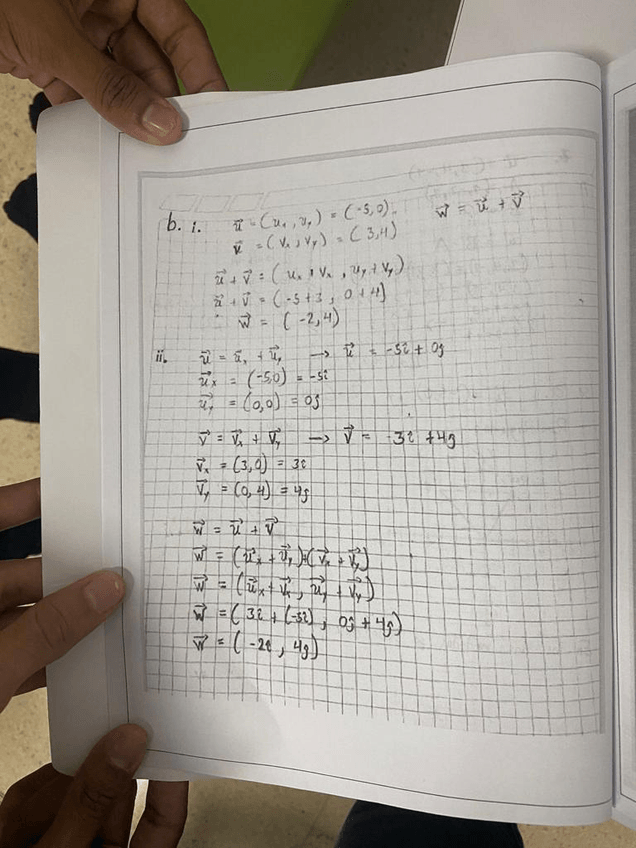 b. i. u⃗ = (uₓ, uᵧ) = (-5,0). w⃗ = u⃗ + v⃗
v⃗ = (vₓ, vᵧ) = (3,4)
u⃗ + v⃗ = (uₓ + vₓ, uᵧ + vᵧ)
u⃗ + v⃗ = (-5+3, 0+4)
w⃗ = (-2,4)
ii. u⃗ = u⃗ₓ + u⃗ᵧ → u⃗ = -5i + 0j
u⃗ₓ = (-5,0) = -5i
u⃗ᵧ = (0,0) = 0j
v⃗ = v⃗ₓ + v⃗ᵧ → v⃗ = 3i + 4j
v⃗ₓ = (3,0) = 3i
v⃗ᵧ = (0,4) = 4j
w⃗ = u⃗ + v⃗
w⃗ = (u⃗ₓ + u⃗ᵧ)+(v⃗ₓ + v⃗ᵧ)
w⃗ = (u⃗ₓ + v⃗ₓ, u⃗ᵧ + v⃗ᵧ)
w⃗ = (3i + (-5i), 0j + 4j)
w⃗ = (-2i, 4j)